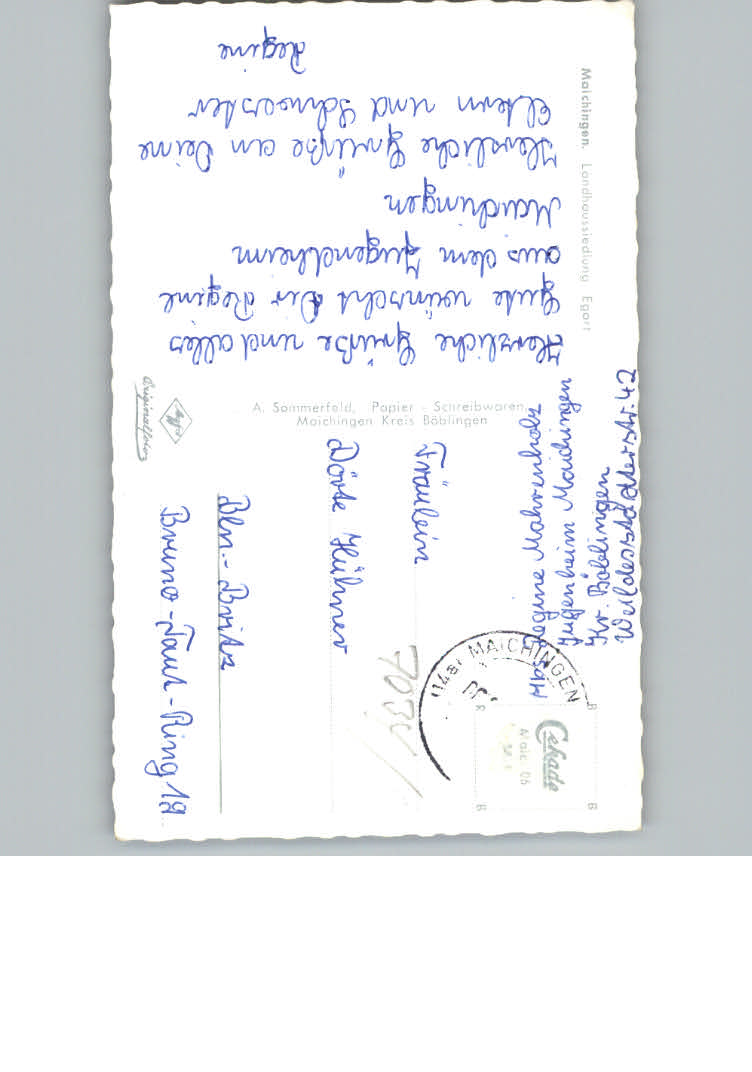 Maichingen. Landhaussiedlung Egart
Herzliche Grüße und alles
Gute wünscht Dir Regine
aus dem Jugendheim
Maichingen
Herzliche Grüße an Deine
Eltern und Schwester
Regine
A. Sommerfeld, Papier - Schreibwaren,
Maichingen Kreis Böblingen
Agfa
Originalfoto
Regine Mahrenholz
Jugenheim Maichingen
Kr. Böblingen
Weilderstädterstr. 42
(14a) MAICHINGEN
Cekade
Maic 06
Fräulein
Dörte Hühner
Bln.-Britz
Bruno-Taut-Ring 19